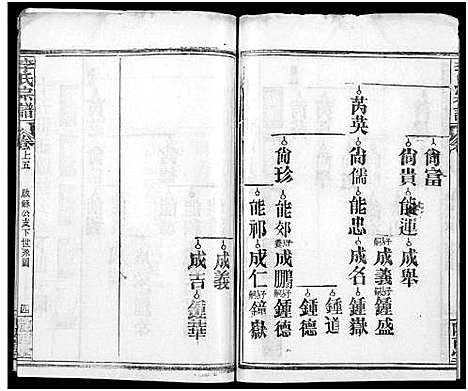 尙富
尙貴 能運 成舉
芮英 尙儒 能忠 成義 嗣 鍾盛
成名 嗣 鍾嶽
鍾道
鍾德
尙珍 能郊 成鵬 鍾德
能祁 成仁 鍾嶽
成義
成吉 鍾華
李氏宗譜
卷上五
啟錄公支下世系圖
四